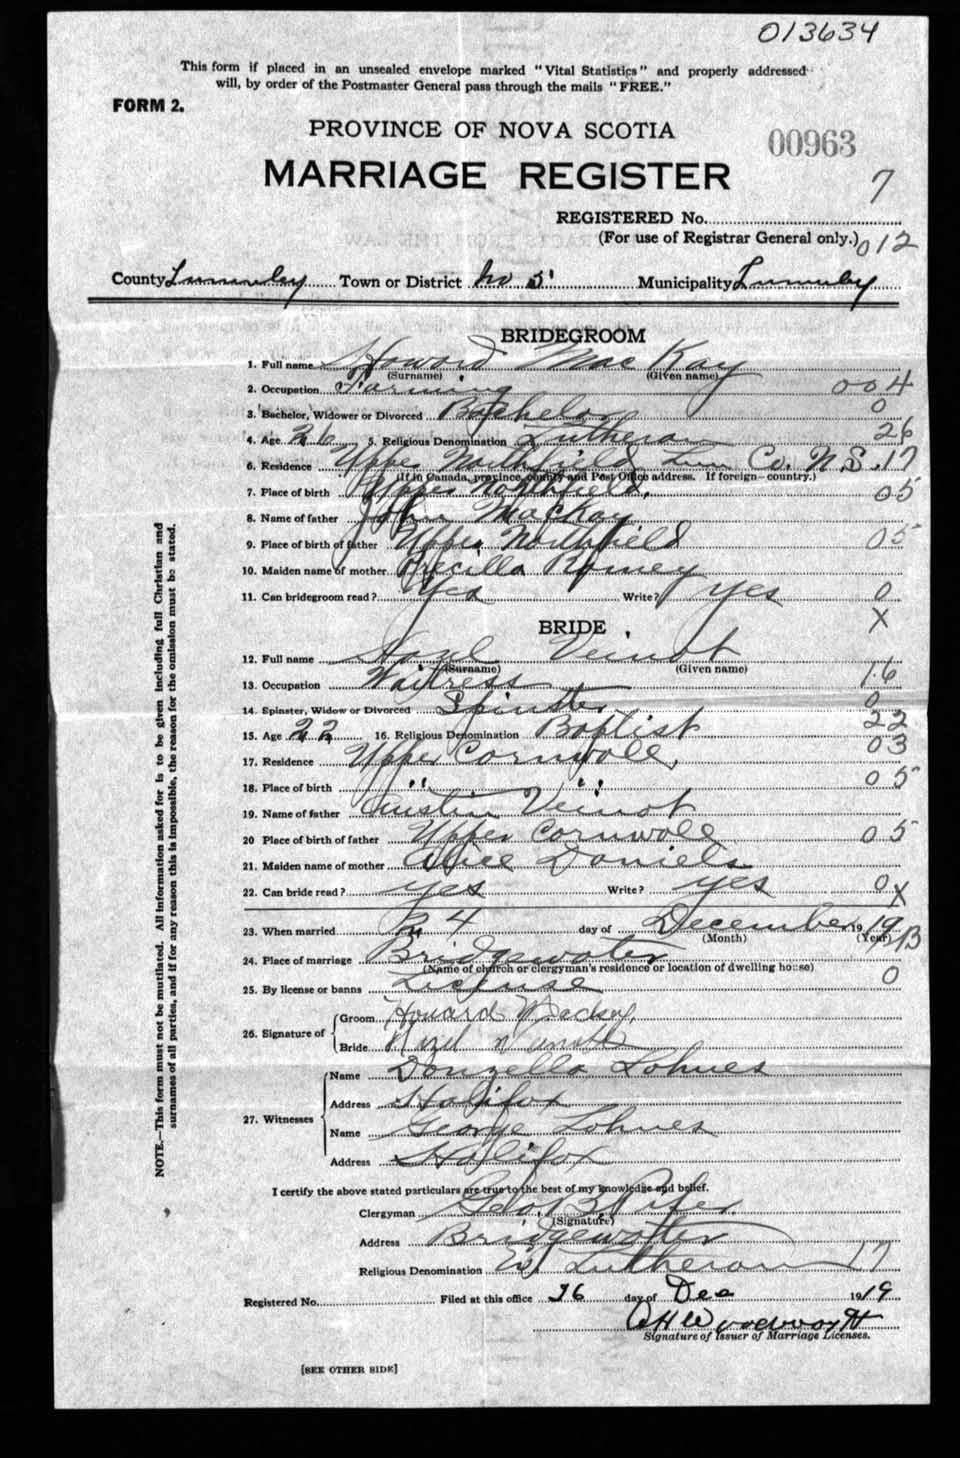 013634
This form if placed in an unsealed envelope marked "Vital Statistics" and properly addressed
will, by order of the Postmaster General pass through the mails "FREE."
FORM 2.
PROVINCE OF NOVA SCOTIA
00963
MARRIAGE REGISTER
7
REGISTERED No.
(For use of Registrar General only.) 012
County Town or District No 5 Municipality
BRIDEGROOM
1. Full name Howard MacKay
(Surname) (Given name)
2. Occupation Farming 004
3. Bachelor, Widower or Divorced Bachelor 0
4. Age 26 5. Religious Denomination Lutheran 26
6. Residence Upper Northfield Lun Co. N.S. 17
(If in Canada, province, county and Post Office address. If foreign—country.)
7. Place of birth Upper Northfield, 05
8. Name of father John MacKay
9. Place of birth of father Upper Northfield 05
10. Maiden name of mother Precilla Romey
11. Can bridegroom read? Yes Write? yes 0
X
BRIDE
12. Full name Hazel Veinot
(Surname) (Given name)
13. Occupation Waitress 16
14. Spinster, Widow or Divorced Spinster 0
15. Age 22 16. Religious Denomination Baptist 22
17. Residence Upper Cornwall, 03
18. Place of birth " " 05
19. Name of father Austin Veinot
20 Place of birth of father Upper Cornwall 05
21. Maiden name of mother Alice Daniels
22. Can bride read? yes Write? yes 0X
23. When married 4 day of December 1919
(Month) (Year) B
24. Place of marriage Bridgewater
(Name of church or clergyman's residence or location of dwelling house)
25. By license or banns License 0
26. Signature of Groom Howard Mackay,
Bride Hazel
27. Witnesses Name Donzella Lohnes
Address Halifax
Name George Lohnes
Address Halifax
I certify the above stated particulars are true to the best of my knowledge and belief.
Clergyman Geo. B.
(Signature)
Address Bridgewater
Religious Denomination Lutheran 17
Registered No. Filed at this office 26 day of Dec 1919
Signature of Issuer of Marriage Licenses.
[SEE OTHER SIDE]
NOTE.—This form must not be mutilated. All information asked for is to be given including full Christian and
surnames of all parties, and if for any reason this is impossible, the reason for the omission must be stated.